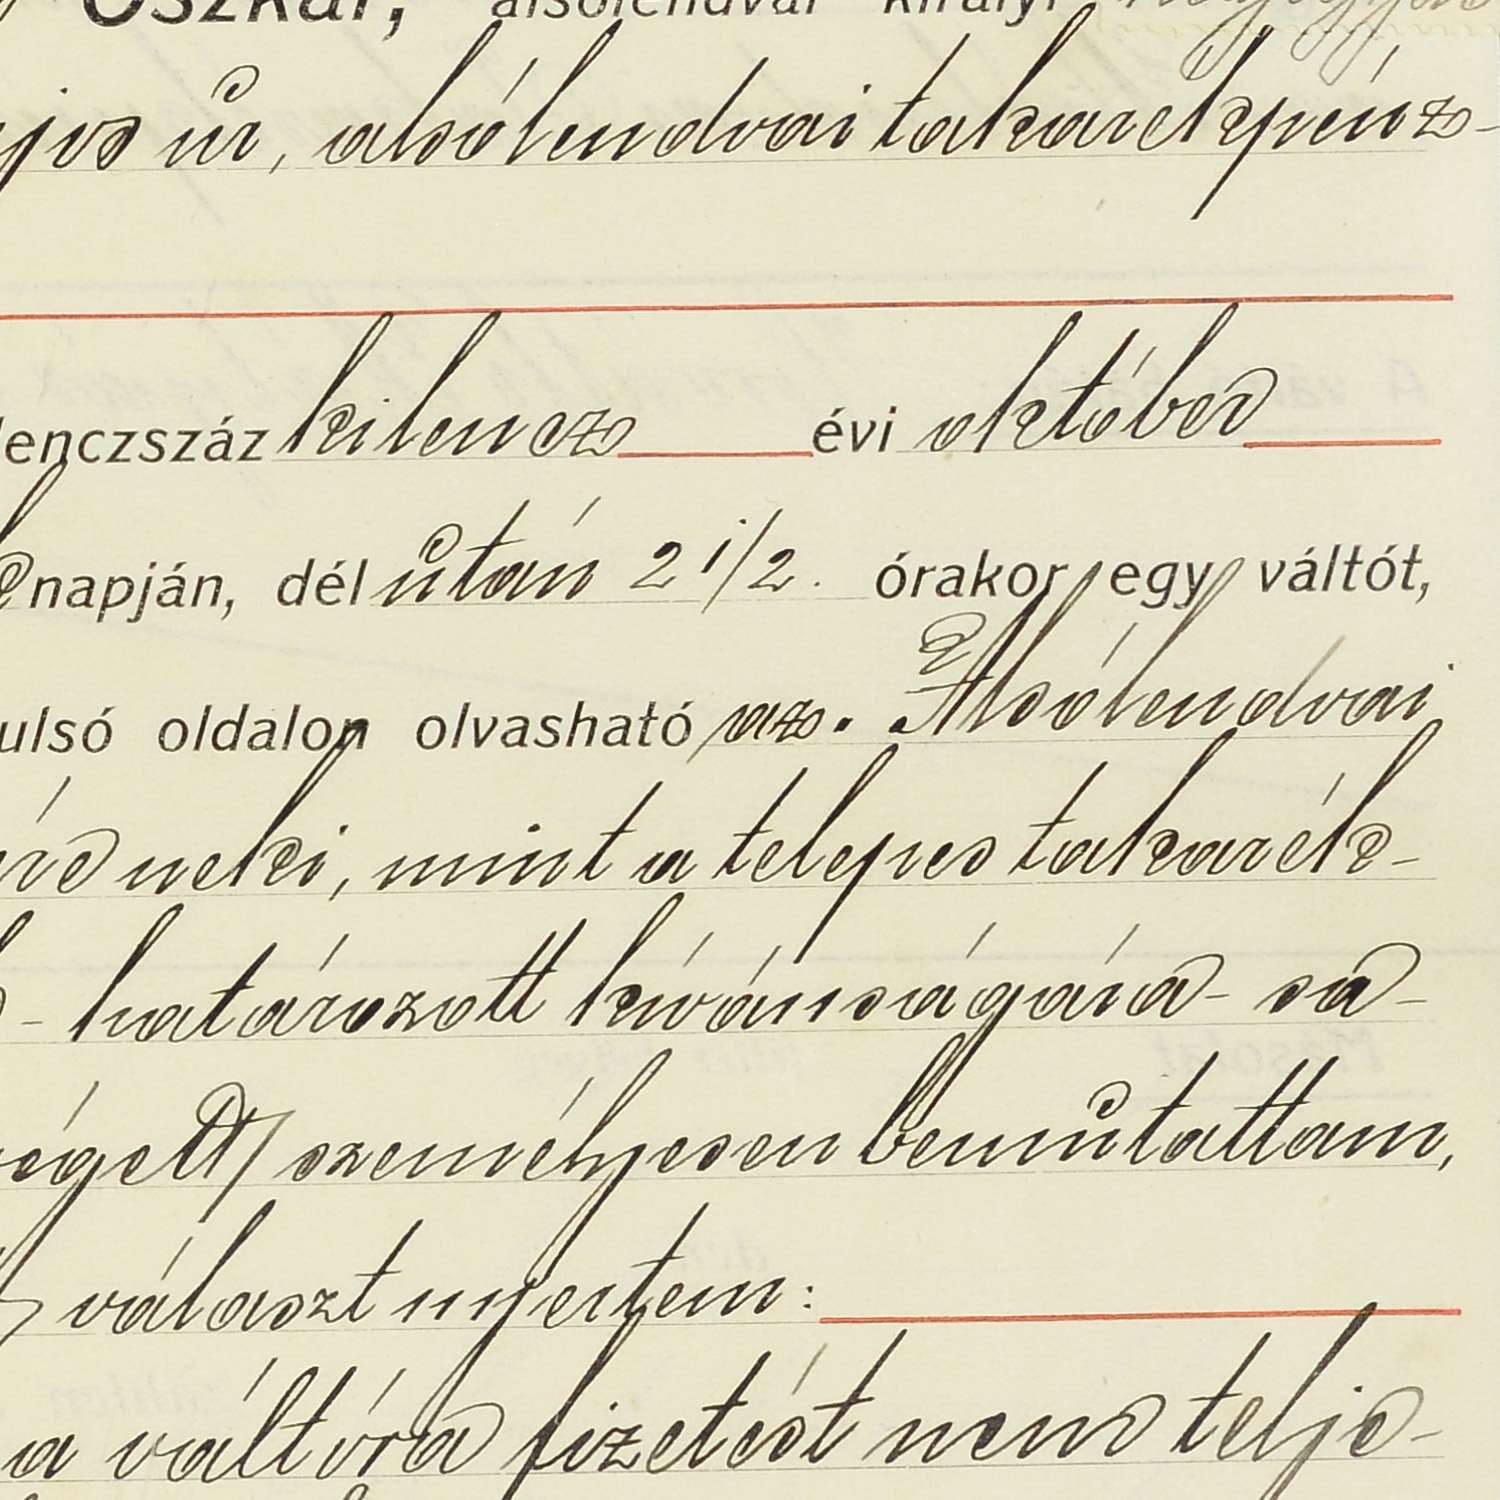 Oszkár, alsólendvai királyi
úr, alsólendvai takarékpénz-
lenczszáz kilencz évi október
napján, dél után 2 1/2. órakor egy váltót,
tulsó oldalon olvasható az. Alsólendvai
neki, mint a telepes takarék-
- határozott kivánságára - sa-
végett/ személyesen bemutattam,
választ nyertem:
a váltóra fizetést nem telje-